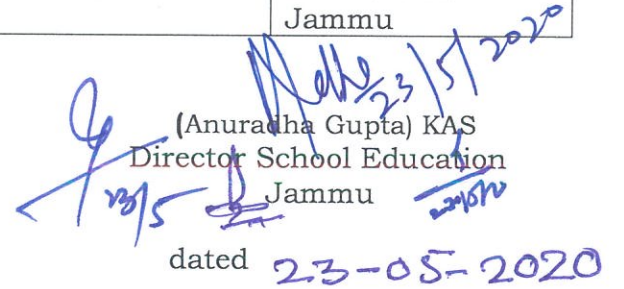 Jammu
23/5/2020
(Anuradha Gupta) KAS
Director School Education
Jammu
23/5
dated 23-05-2020